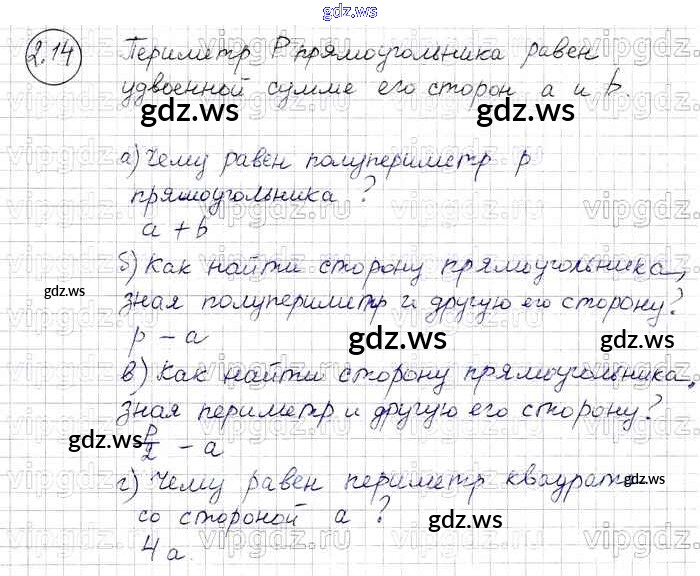 gdz.ws
2.14 Периметр P прямоугольника равен
удвоенной сумме его сторон a и b.
gdz.ws gdz.ws
а) Чему равен полупериметр p
прямоугольника ?
a + b
б) Как найти сторону прямоугольника,
gdz.ws
зная полупериметр и другую его сторону?
p - a
gdz.ws gdz.ws
в) Как найти сторону прямоугольника,
зная периметр и другую его сторону?
gdz.ws
P/2 - a
г) Чему равен периметр квадрата
gdz.ws
со стороной a ?
gdz.ws
4a.